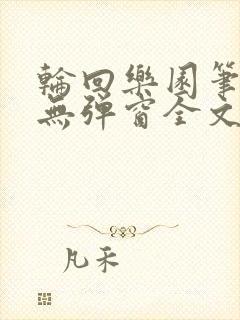 輪回樂園筆
無彈窗全文
凡禾